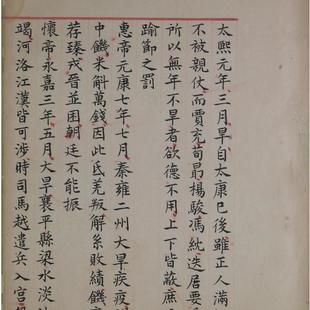 太熙元年三月旱自太康已後雖正人滿
不被親仗而賈充荀勗楊駿馮紞迭居要
所以無年不旱者欲德不用上下皆蔽庶
踰節之罰
惠帝元康七年七月秦雍二州大旱疾疫
中饑米斛萬錢因此氐羌叛解系敗績饑
荐臻戎晉並困朝廷不能振
懷帝永嘉三年五月大旱襄平縣梁水淡
竭河洛江漢皆可涉時司馬越遣兵入宮